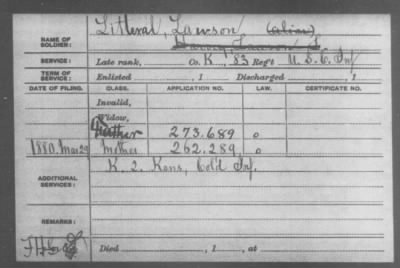 Litteral, Lawson (alias)
NAME OF SOLDIER:
SERVICE: Late rank, Co. K, 83 Reg't U.S.C. Inf
TERM OF SERVICE: Enlisted , 1 Discharged , 1
DATE OF FILING. CLASS. APPLICATION NO. LAW. CERTIFICATE NO.
Invalid,
Widow,
273.689 o
1880. Mar 29 Mother 262.289 o
ADDITIONAL SERVICES: K. 2. Kans, Col'd Inf.
REMARKS:
Died , 1 , at